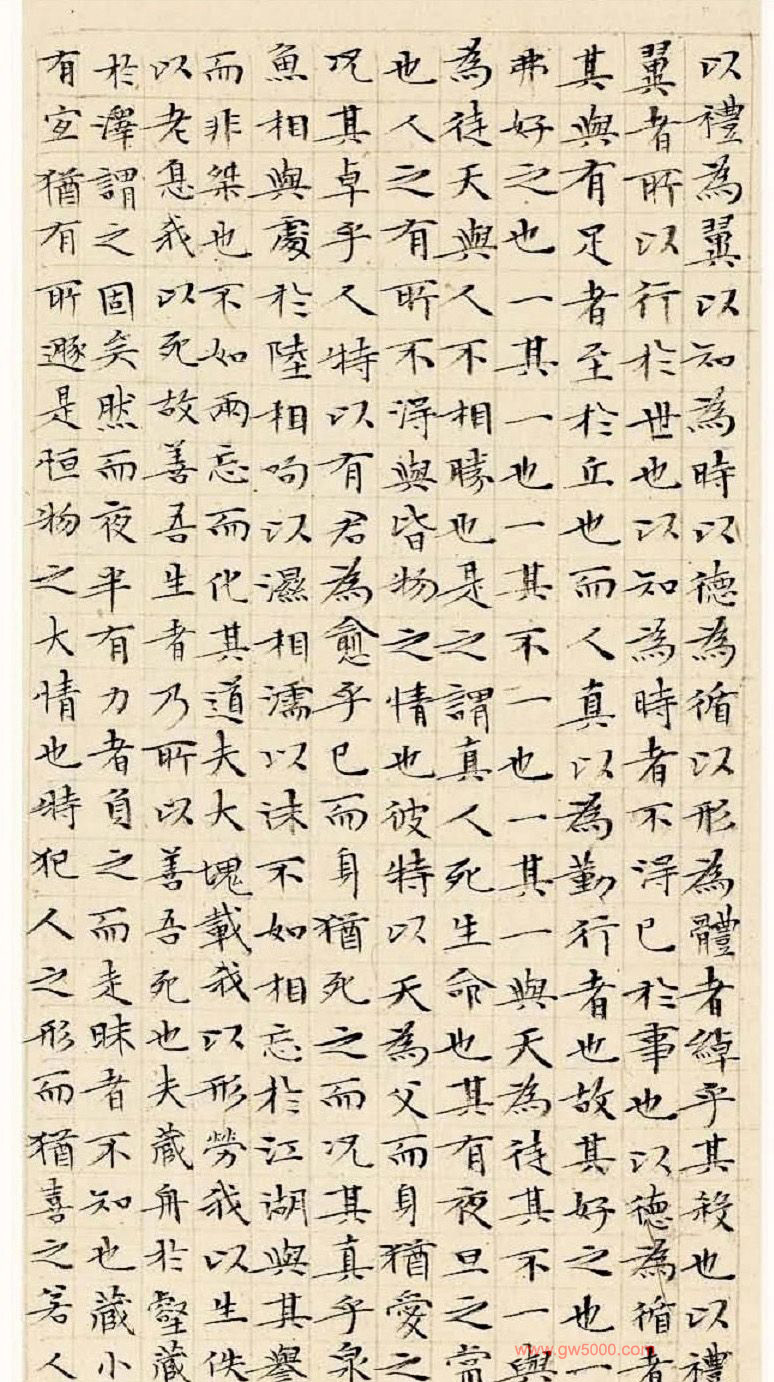 以禮為翼以知為時以德為循以形為體者綽乎其殺也以禮
翼者所以行於世也以知為時者不得已於事也以德為循者
其與有足者至於丘也而人真以為勤行者也故其好之也一
弗好之也一其一也一其不一也一其一與天為徒其不一與
為徒天與人不相勝也是之謂真人死生命也其有夜旦之常
也人之有所不得與皆物之情也彼特以天為父而身猶愛之
况其卓乎人特以有君為愈乎已而身猶死之而况其真乎泉
魚相與處於陸相呴以濕相濡以沫不如相忘於江湖與其譽
而非桀也不如兩忘而化其道夫大塊載我以形勞我以生佚
以老息我以死故善吾生者乃所以善吾死也夫藏舟於壑藏
於澤謂之固矣然而夜半有力者負之而走昧者不知也藏小
有宜猶有所遯是恒物之大情也特犯人之形而猶喜之若人
www.gw5000.com